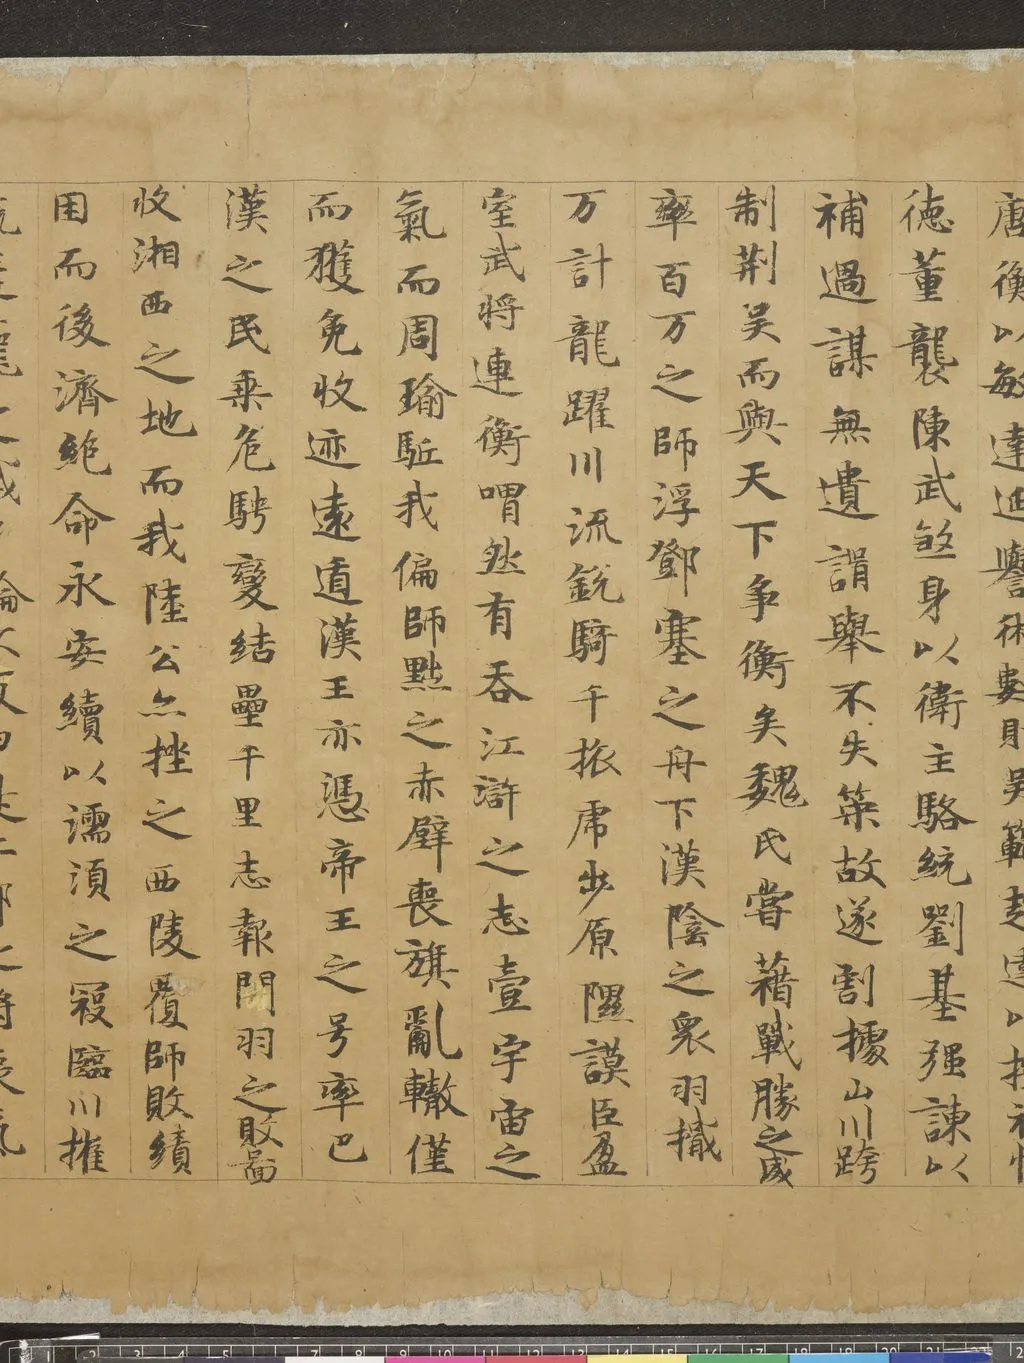 衡以敏達延譽術數則吳範趙達以
德董襲陳武煞身以衛主駱統劉基强諫以
補過謀無遺諝舉不失策故遂割據山川跨
制荊吳而與天下爭衡矣魏氏嘗藉戰勝之威
率百万之師浮鄧塞之舟下漢陰之衆羽檝
万計龍躍川流銳騎千旅虎步原隰謨臣盈
室武將連衡喟然有吞江滸之志壹宇宙之
氣而周瑜駈我偏師黜之赤壁喪旗亂轍僅
而獲免收迹遠遁漢王亦憑帝王之号率巴
漢之民乘危騁變結壘千里志報關羽之敗圖
收湘西之地而我陸公亦挫之西陵覆師敗績
困而後濟絕命永安續以濡須之寇臨川摧